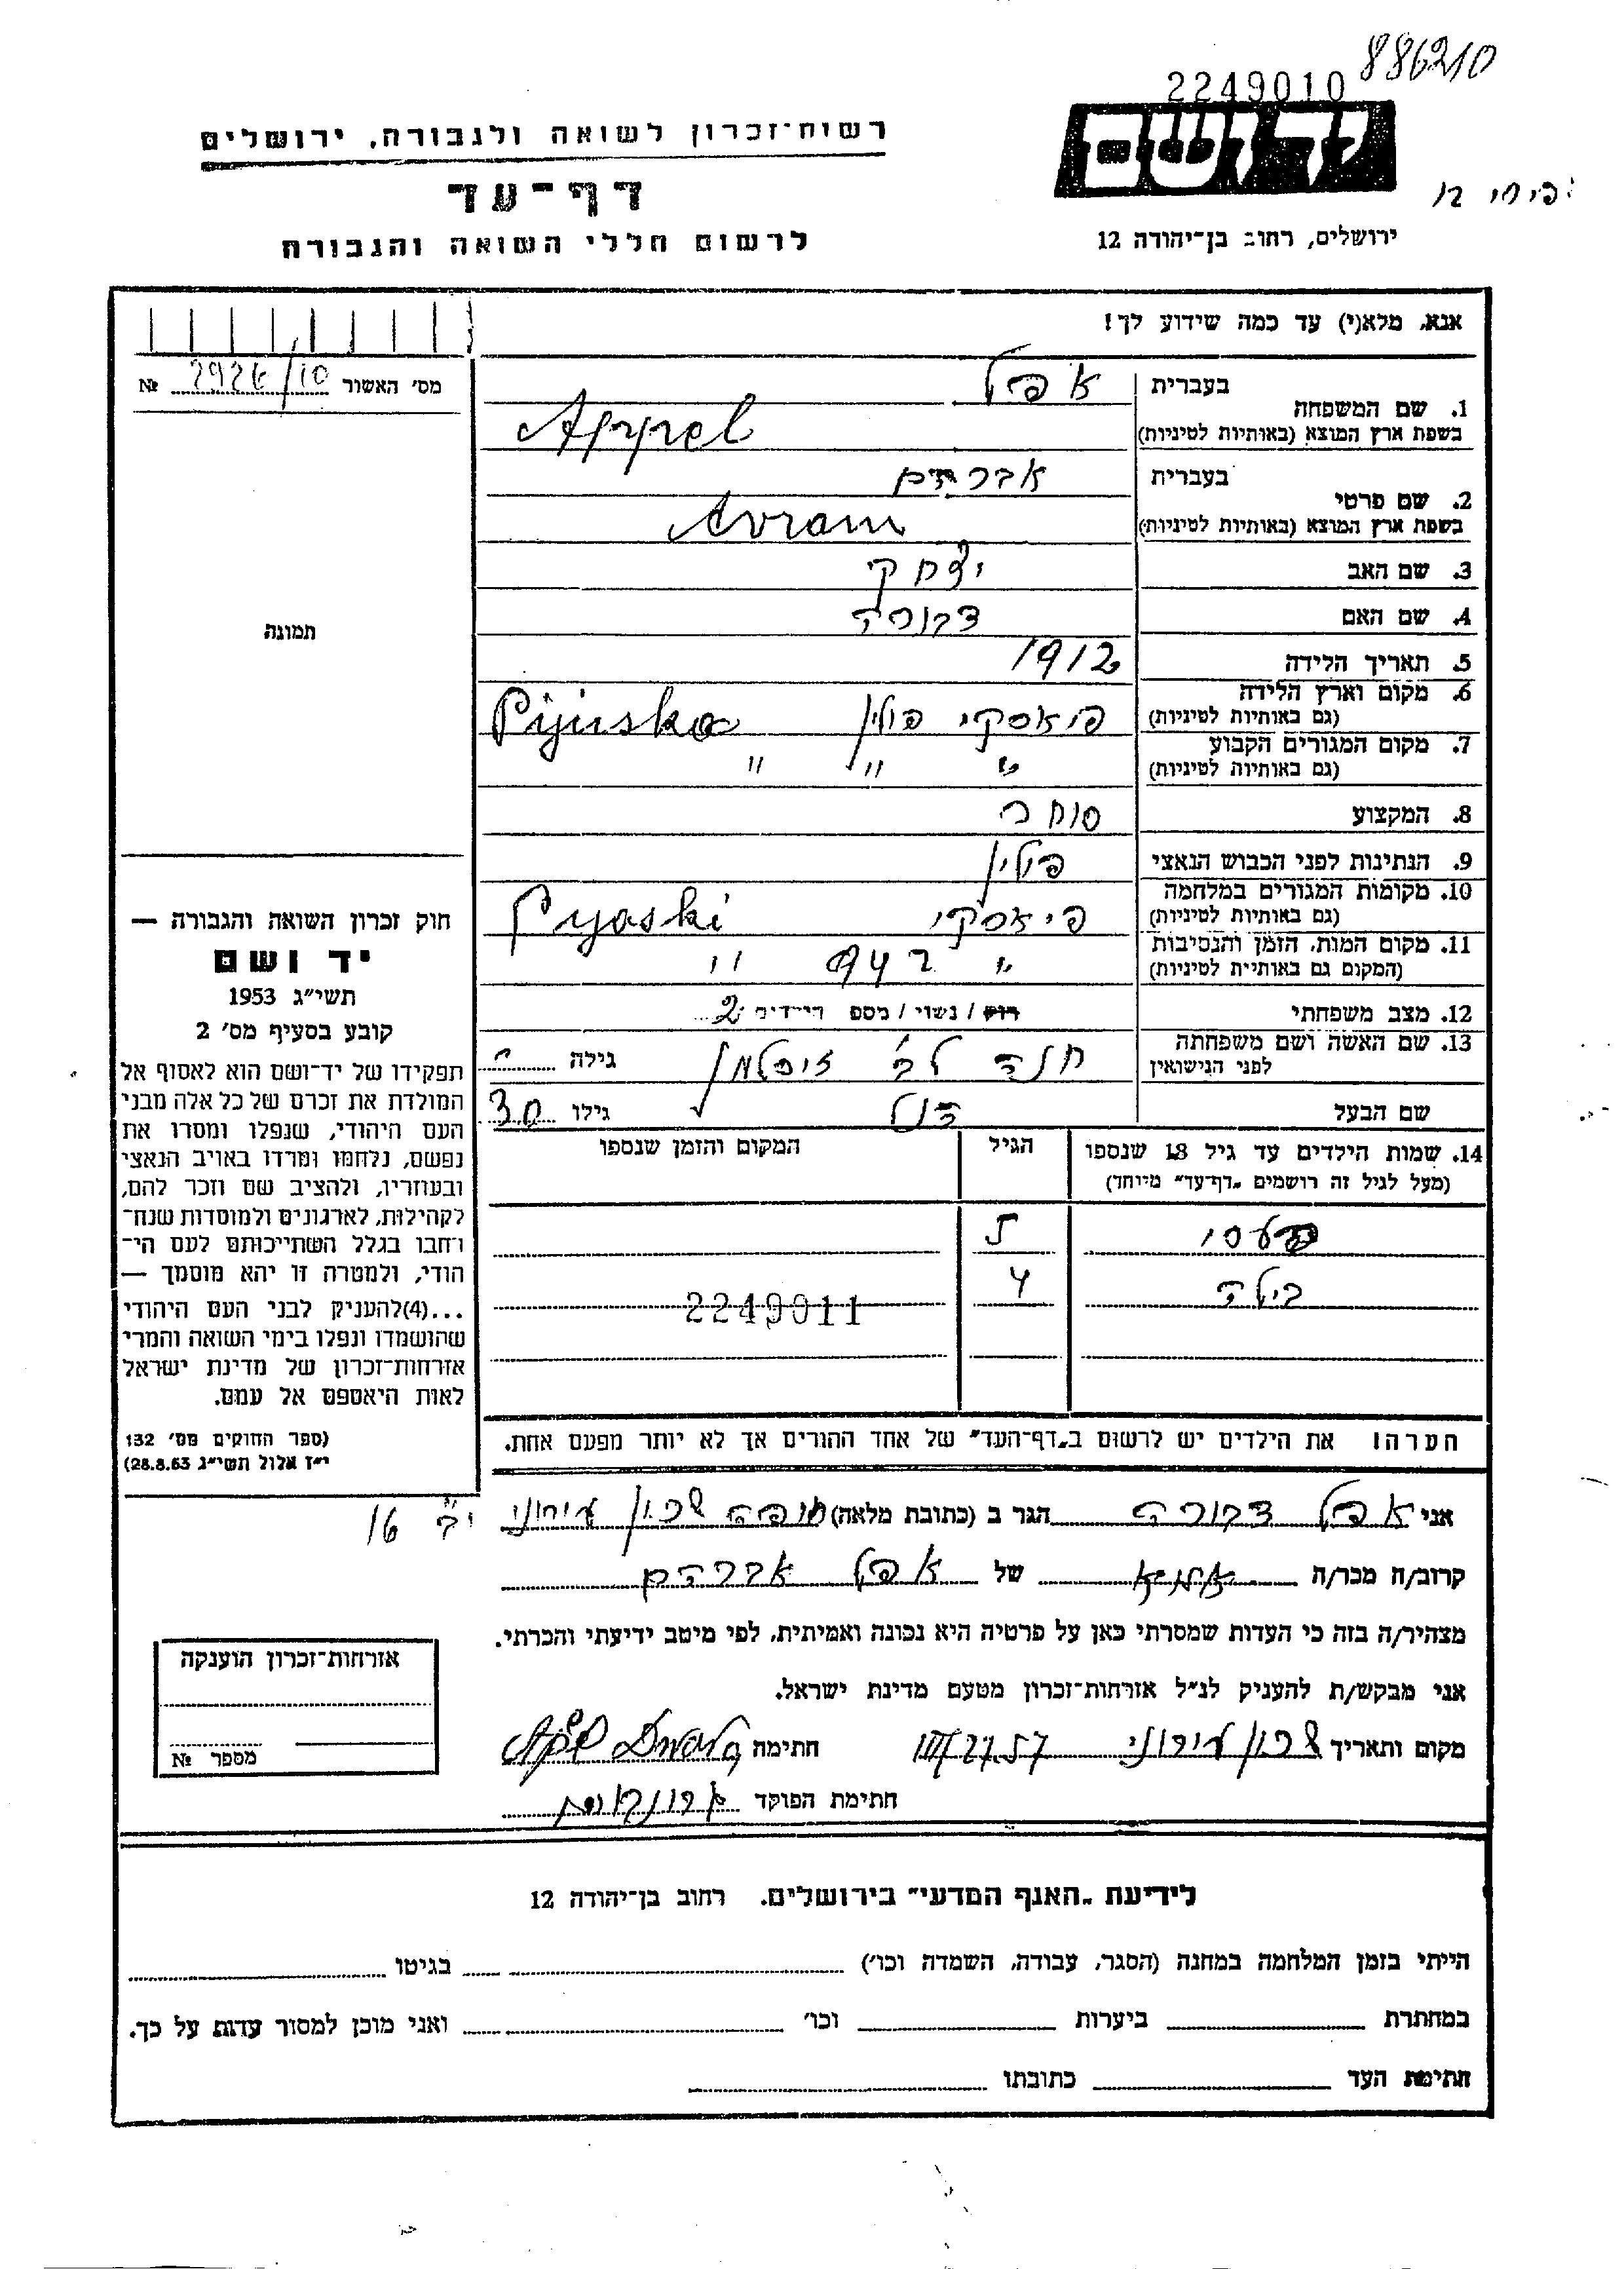 886210
2249010
יד ושם
רשות־זכרון לשואה ולגבורה, ירושלים
דף־עד
לרשום חללי השואה והגבורה
ירושלים, רחוב בן־יהודה 12
אנא, מלא(י) עד כמה שידוע לך!
מס׳ האשור № 292א/10
בעברית אפל
1. שם המשפחה
בשפת ארץ המוצא (באותיות לטיניות) Appel
בעברית אברהם
2. שם פרטי
בשפת ארץ המוצא (באותיות לטיניות) Avram
3. שם האב יצחק
4. שם האם דבורה
5. תאריך הלידה 1912
6. מקום וארץ הלידה
(גם באותיות לטיניות) פיאסקי פולין
7. מקום המגורים הקבוע
(גם באותיות לטיניות) " " "
8. המקצוע סוחר
9. הנתינות לפני הכבוש הנאצי פולין
10. מקומות המגורים במלחמה
(גם באותיות לטיניות) פיאסקי Pyaski
11. מקום המות, הזמן והנסיבות
(המקום גם באותיות לטיניות) " 942 "
12. מצב משפחתי רוק / נשוי / מספ הילדים 2
13. שם האשה ושם משפחתה
לפני הנישואין חנה לב׳ גילה
שם הבעל גילו 30
תמונה
חוק זכרון השואה והגבורה —
יד ושם
תשי״ג 1953
קובע בסעיף מס׳ 2
תפקידו של יד־ושם הוא לאסוף אל
המולדת את זכרם של כל אלה מבני
העם היהודי, שנפלו ומסרו את
נפשם, נלחמו ומרדו באויב הנאצי
ובעוזריו, ולהציב שם וזכר להם,
לקהילות, לארגונים ולמוסדות שנח־
רבו בגלל השתייכותם לעם הי־
הודי, ולמטרה זו יהא מוסמך —
...(4) להעניק לבני העם היהודי
שהושמדו ונפלו בימי השואה והמרי
אזרחות־זכרון של מדינת ישראל
לאות היאספם אל עמם.
(ספר החוקים מס׳ 132
י״ז אלול תשי״ג 28.8.53)
14. שמות הילדים עד גיל 18 שנספו
(מעל לגיל זה רושמים „דף־עד״ מיוחד)
הגיל
המקום והזמן שנספו
5
בילה 4
2249011
הערה! את הילדים יש לרשום ב„דף־העד״ של אחד ההורים אך לא יותר מפעם אחת.
אני אפל דבורה הגר ב (כתובת מלאה) חיפה שכון עירוני 16
קרוב/ה מכר/ה אמא של אפל אברהם
מצהיר/ה בזה כי העדות שמסרתי כאן על פרטיה היא נכונה ואמיתית, לפי מיטב ידיעתי והכרתי.
אני מבקש/ת להעניק לנ״ל אזרחות־זכרון מטעם מדינת ישראל.
מקום ותאריך שכון עירוני 27.57 חתימה
חתימת הפוקד
אזרחות־זכרון הוענקה
מספר №
לידיעת „האגף המדעי״ בירושלים. רחוב בן־יהודה 12
הייתי בזמן המלחמה במחנה (הסגר, עבודה, השמדה וכו׳) בגיטו
במחתרת ביערות וכו׳ ואני מוכן למסור עדות על כך.
חתימת העד כתובתו